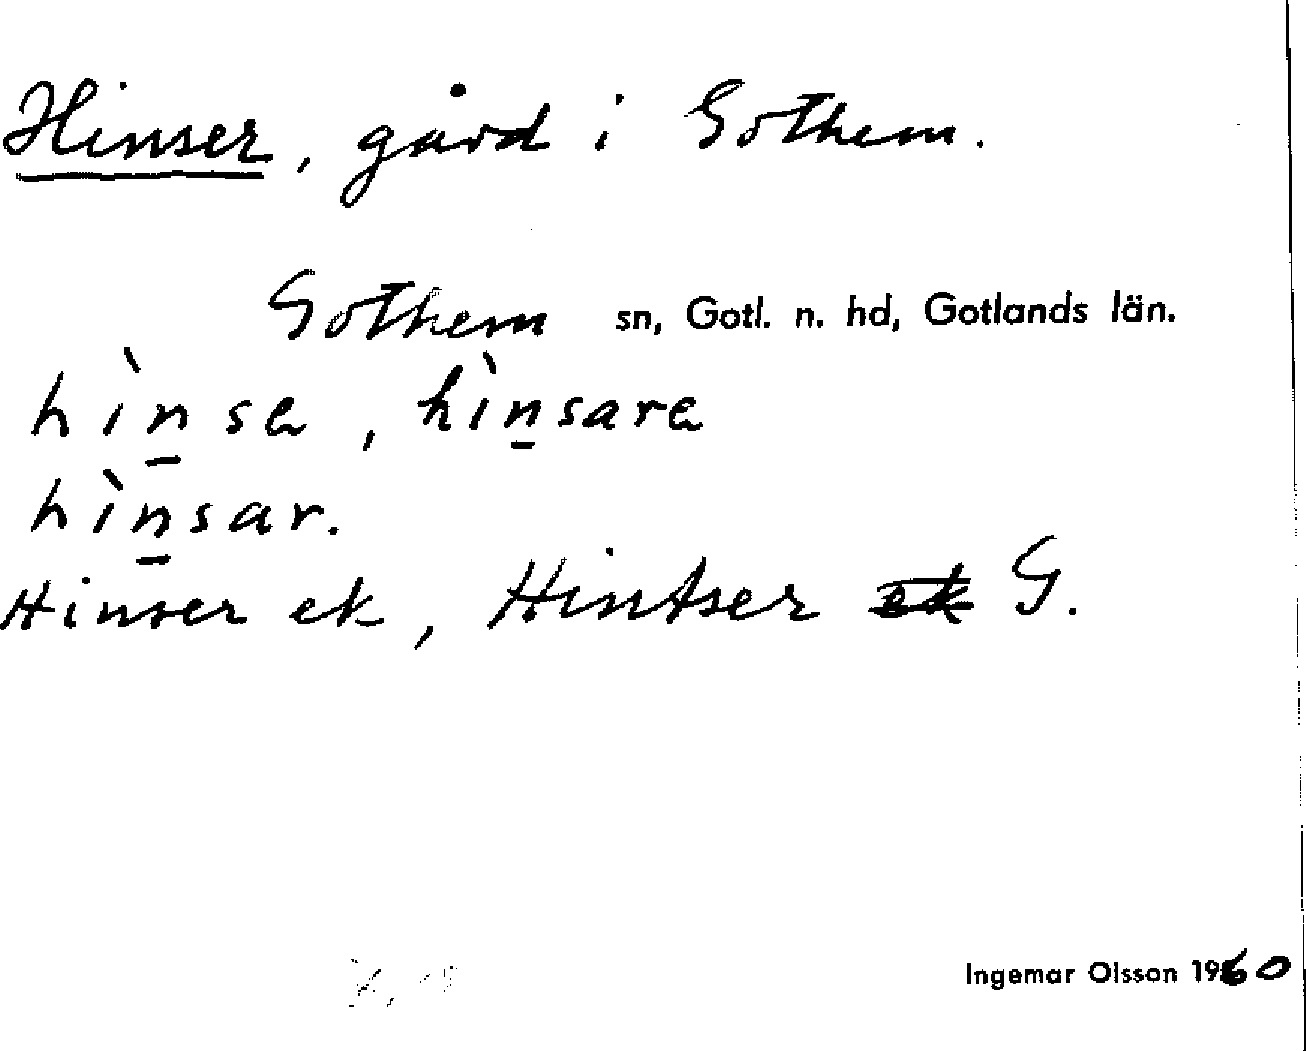 Hinser, gård i Gothem.
Gothem sn, Gotl. n. hd, Gotlands län.
hìn̲sa, hìn̲sara
hìn̲sar.
Hinser ek, Hintser ~~ek~~ G.
Ingemar Olsson 1960